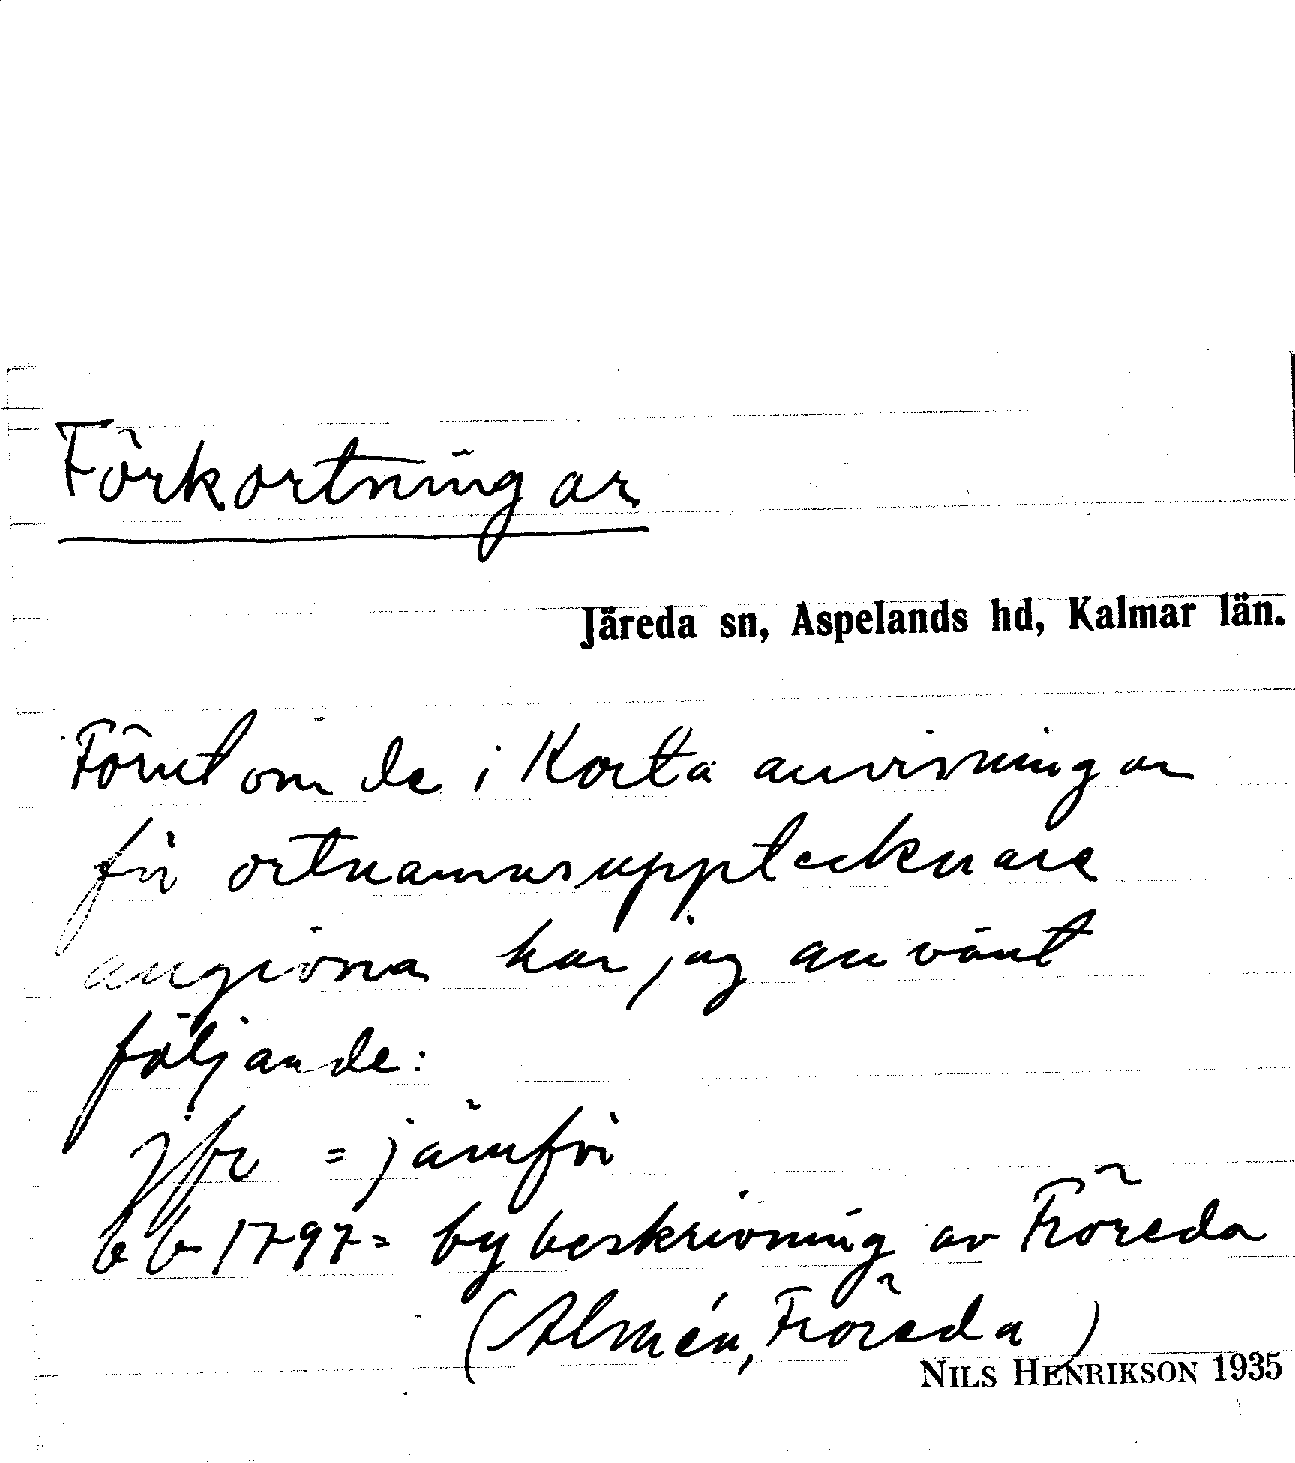 Förkortningar
Järeda sn, Aspelands hd, Kalmar län.
Förutom de i Korta anvisningar
för ortnamnsupptecknare
angivna har jag använt
följande:
jfr = jämför
bb 1797 = bybeskrivning av Fröreda
(Almén, Fröreda)
NILS HENRIKSON 1935